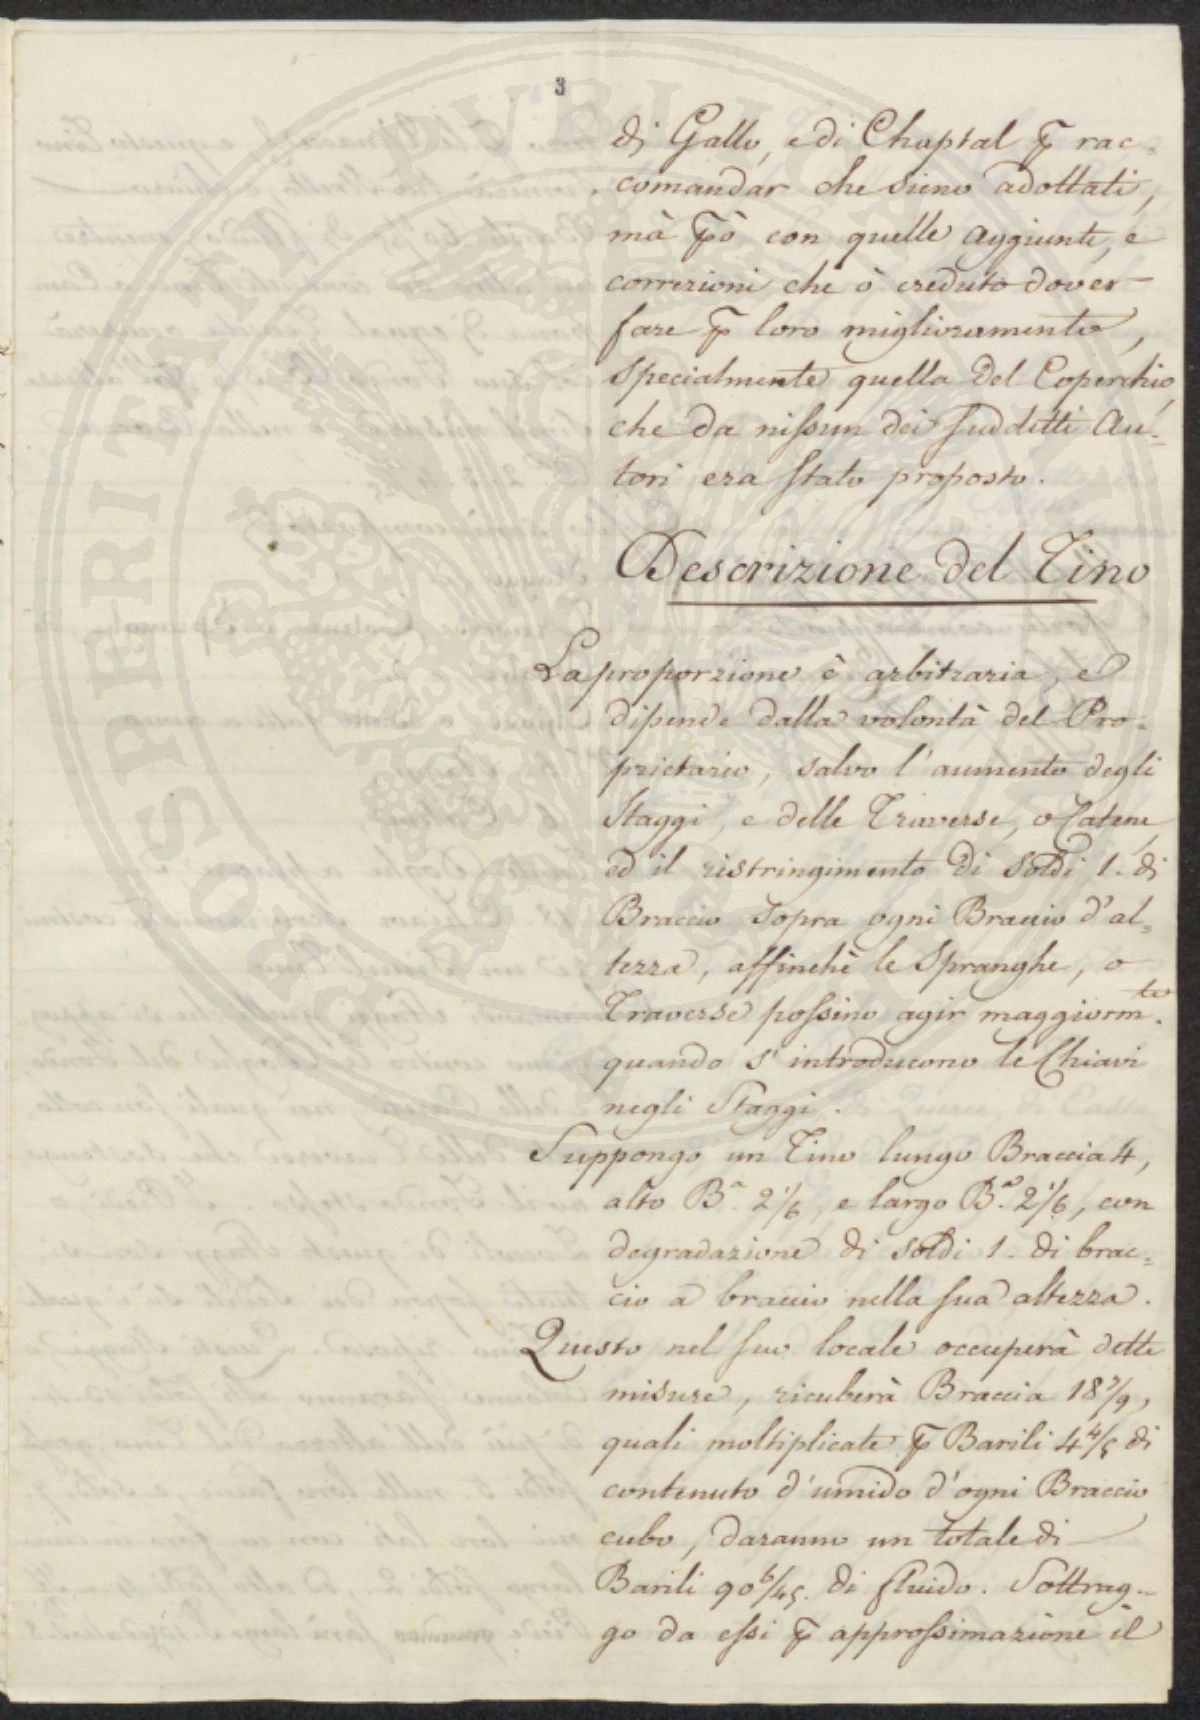 3
di Gallo, e di Chaptal ꝑ rac-
comandar che sieno adottati,
mà ꝑò con quelle aggiunte, e
correzioni che ò creduto dover
fare ꝑ loro miglioramento,
specialmente quella del Coperchio,
che da nissun dei suddetti Au-
tori era stato proposto.
Descrizione del Tino
La proporzione è arbitraria, e
dipende dalla volontà del Pro-
prietario, salvo l'aumento degli
Staggi, e delle Traverse, o Catene,
ed il ristringimento di soldi 1. di
Braccio sopra ogni Braccio d'al-
tezza, affinchè le Spranghe, o
Traverse possino agir maggiorm.to
quando s'introducono le Chiavi
negli Staggi.
Suppongo un Tino lungo Braccia 4,
alto B.a 2 1/6, e largo B.a 2 1/6, con
degradazione di soldi 1. di brac-
cio a braccio nella sua altezza.
Questo nel suo locale occuperà dette
misure, ricuberà Braccia 18 7/9,
quali moltiplicate ꝑ Barili 4 4/5 di
contenuto d'umido d'ogni Braccio
cubo, daranno un totale di
Barili 90 6/45. di fluido. Sottrag-
go da essi ꝑ approssimazione il
PROSPERITATI PVBLICAE